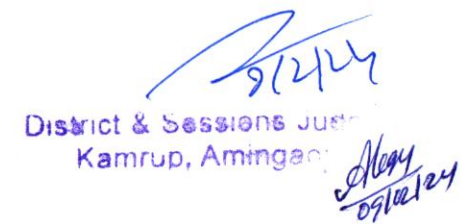 9/2/24
District & Sessions Jud
Kamrup, Amingao
09/02/24